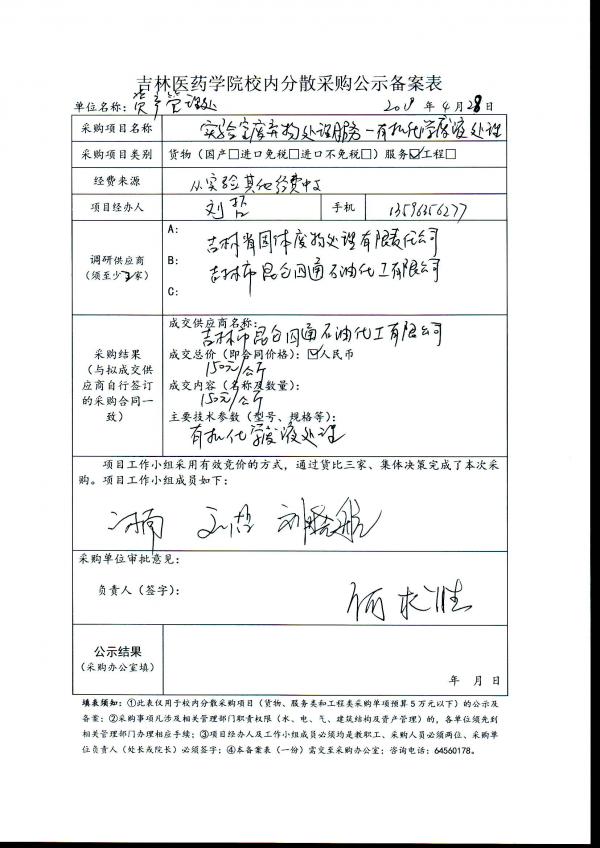 吉林医药学院校内分散采购公示备案表
单位名称：资产管理处 2019 年 4 月 28 日
采购项目名称 实验室废弃物处理服务—有机化学废液处理
采购项目类别 货物（国产□进口免税□进口不免税□）服务☑工程□
经费来源 从实验其他经费中支
项目经办人 刘哲 手机 13596356277
调研供应商
（须至少2家）
A:
吉林省固体废物处理有限责任公司
B:
吉林市昆仑四通石油化工有限公司
C:
采购结果
（与拟成交供
应商自行签订
的采购合同一
致）
成交供应商名称：
吉林市昆仑四通石油化工有限公司
成交总价（即合同价格）：☑人民币
150元/公斤
成交内容（名称及数量）：
150元/公斤
主要技术参数（型号、规格等）：
有机化学废液处理
项目工作小组采用有效竞价的方式，通过货比三家、集体决策完成了本次采
购。项目工作小组成员如下：
刘哲 刘晓航
采购单位审批意见：
负责人（签字）：
公示结果
（采购办公室填）
年 月 日
填表须知：①此表仅用于校内分散采购项目（货物、服务类和工程类采购单项预算5万元以下）的公示及
备案；②采购事项凡涉及相关管理部门职责权限（水、电、气、建筑结构及资产管理）的，各单位须先到
相关管理部门办理相应手续；③项目经办人及工作小组成员必须均是教职工、采购人员必须两位、采购单
位负责人（处长或院长）必须签字；④本备案表（一份）需交至采购办公室；咨询电话：64560178。